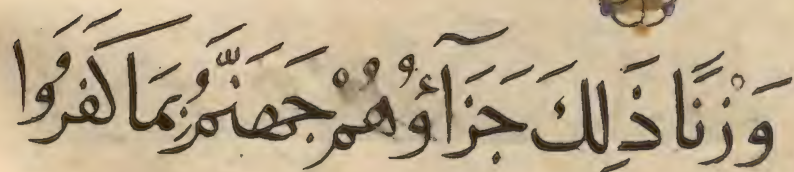 وَزْنًا ذَلِكَ جَزَآؤُهُمْ جَهَنَّمُ بِمَا كَفَرُوا